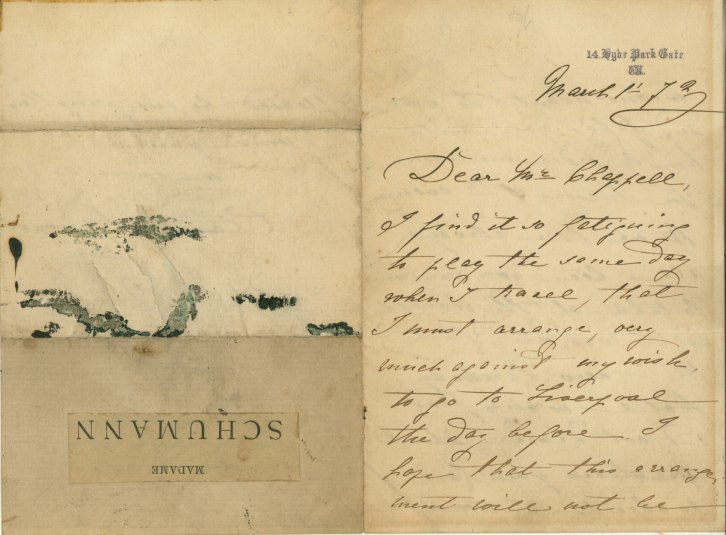 14 Hyde Park Gate
W.
March 7th
Dear Mr Chappell,
I find it so fatiguing
to play the same day
when I travel, that
I must arrange, very
much against my wish,
to go to Liverpool
the day before. I
hope that this arrange
ment will not be
MADAME
SCHUMANN